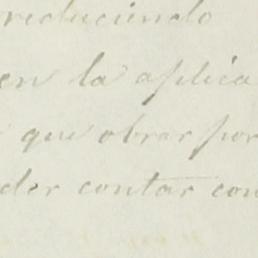 reduciendo
en la aplica
que obrar por
der contar con